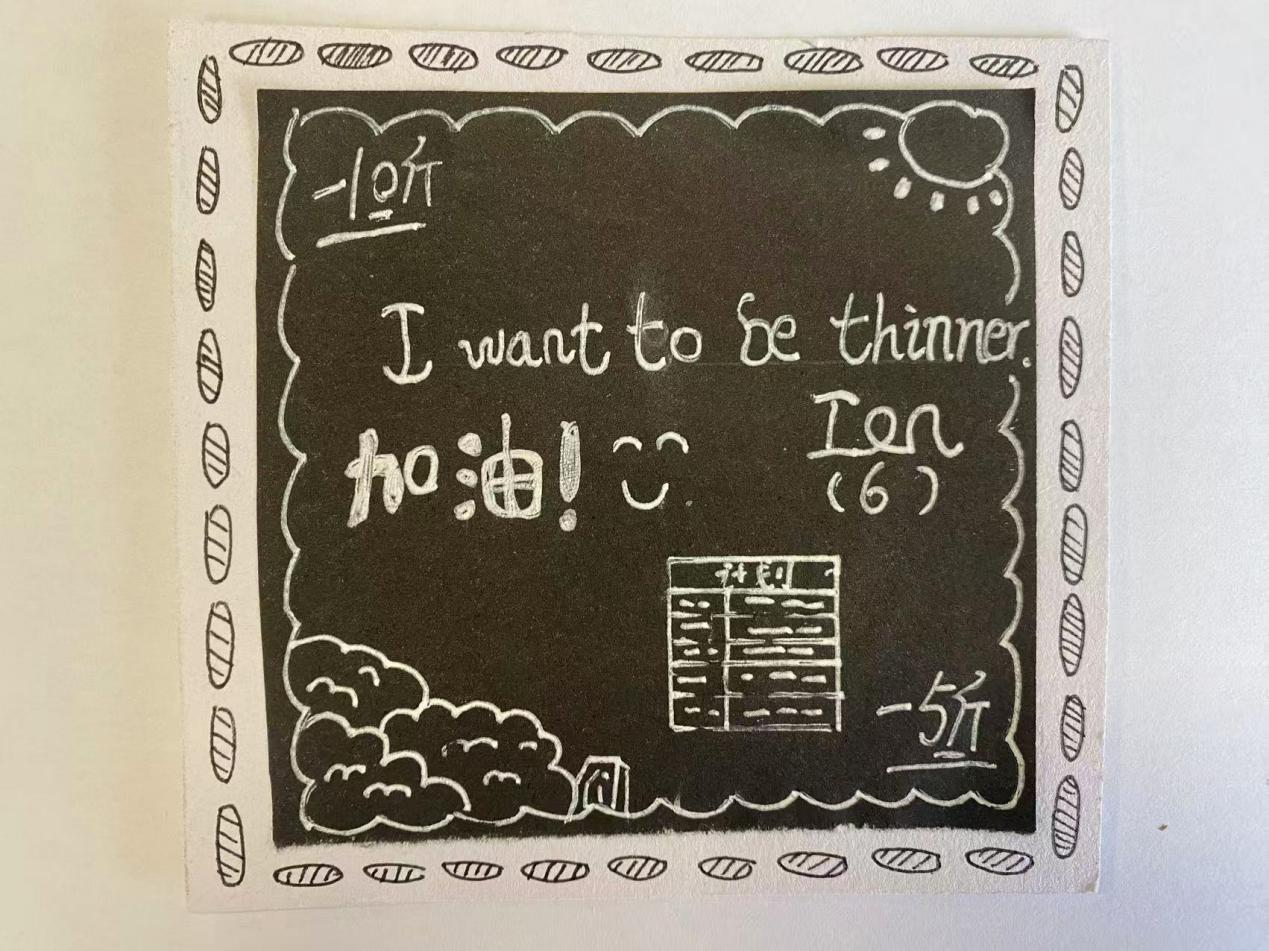 -10斤
I want to be thinner.
Ian
(6)
加油!
计划
-5斤